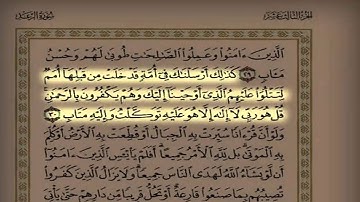 الجزء الثالث عشر سورة الرعد
الَّذِينَ ءَامَنُوا وَعَمِلُوا الصَّٰلِحَٰتِ طُوبَىٰ لَهُمْ وَحُسْنُ
مَـَٔابٍ ٢٩ كَذَٰلِكَ أَرْسَلْنَٰكَ فِىٓ أُمَّةٍ قَدْ خَلَتْ مِن قَبْلِهَآ أُمَمٌ
لِّتَتْلُوَا۟ عَلَيْهِمُ الَّذِىٓ أَوْحَيْنَآ إِلَيْكَ وَهُمْ يَكْفُرُونَ بِالرَّحْمَٰنِ
قُلْ هُوَ رَبِّى لَآ إِلَٰهَ إِلَّا هُوَ عَلَيْهِ تَوَكَّلْتُ وَإِلَيْهِ مَتَابِ ٣٠
وَلَوْ أَنَّ قُرْءَانًا سُيِّرَتْ بِهِ الْجِبَالُ أَوْ قُطِّعَتْ بِهِ الْأَرْضُ أَوْ كُلِّمَ
بِهِ الْمَوْتَىٰ بَل لِّلَّهِ الْأَمْرُ جَمِيعًا أَفَلَمْ يَا۟يْـَٔسِ الَّذِينَ ءَامَنُوٓا
أَن لَّوْ يَشَآءُ اللَّهُ لَهَدَى النَّاسَ جَمِيعًا وَلَا يَزَالُ الَّذِينَ كَفَرُوا
تُصِيبُهُم بِمَا صَنَعُوا قَارِعَةٌ أَوْ تَحُلُّ قَرِيبًا مِّن دَارِهِمْ حَتَّىٰ يَأْتِىَ